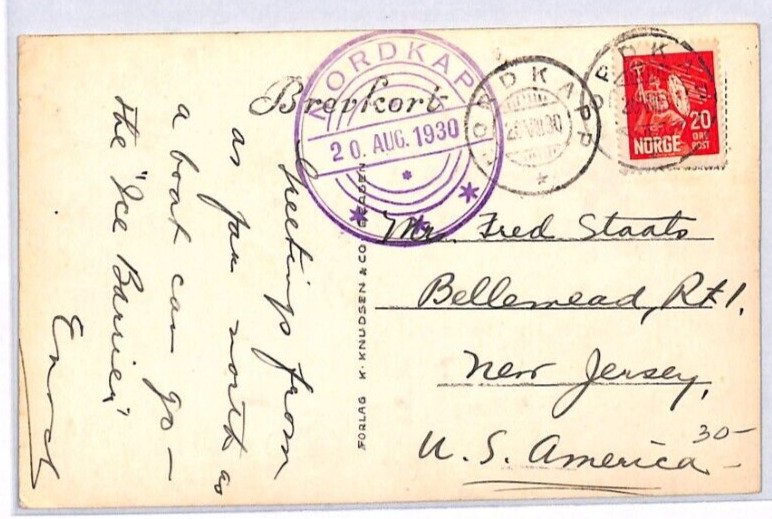 Brevkort
NORDKAPP
20. AUG. 1930
NORDKAPP
20 VIII 30
20
ØRE
POST
NORGE
Greetings from
as far north as
a boat can go —
the "Ice Barrier"
Enoch
FORLAG K. KNUDSEN & CO. BERGEN
Mr. Fred Staats
Bellemead, Rt 1.
New Jersey,
U. S. America
30-